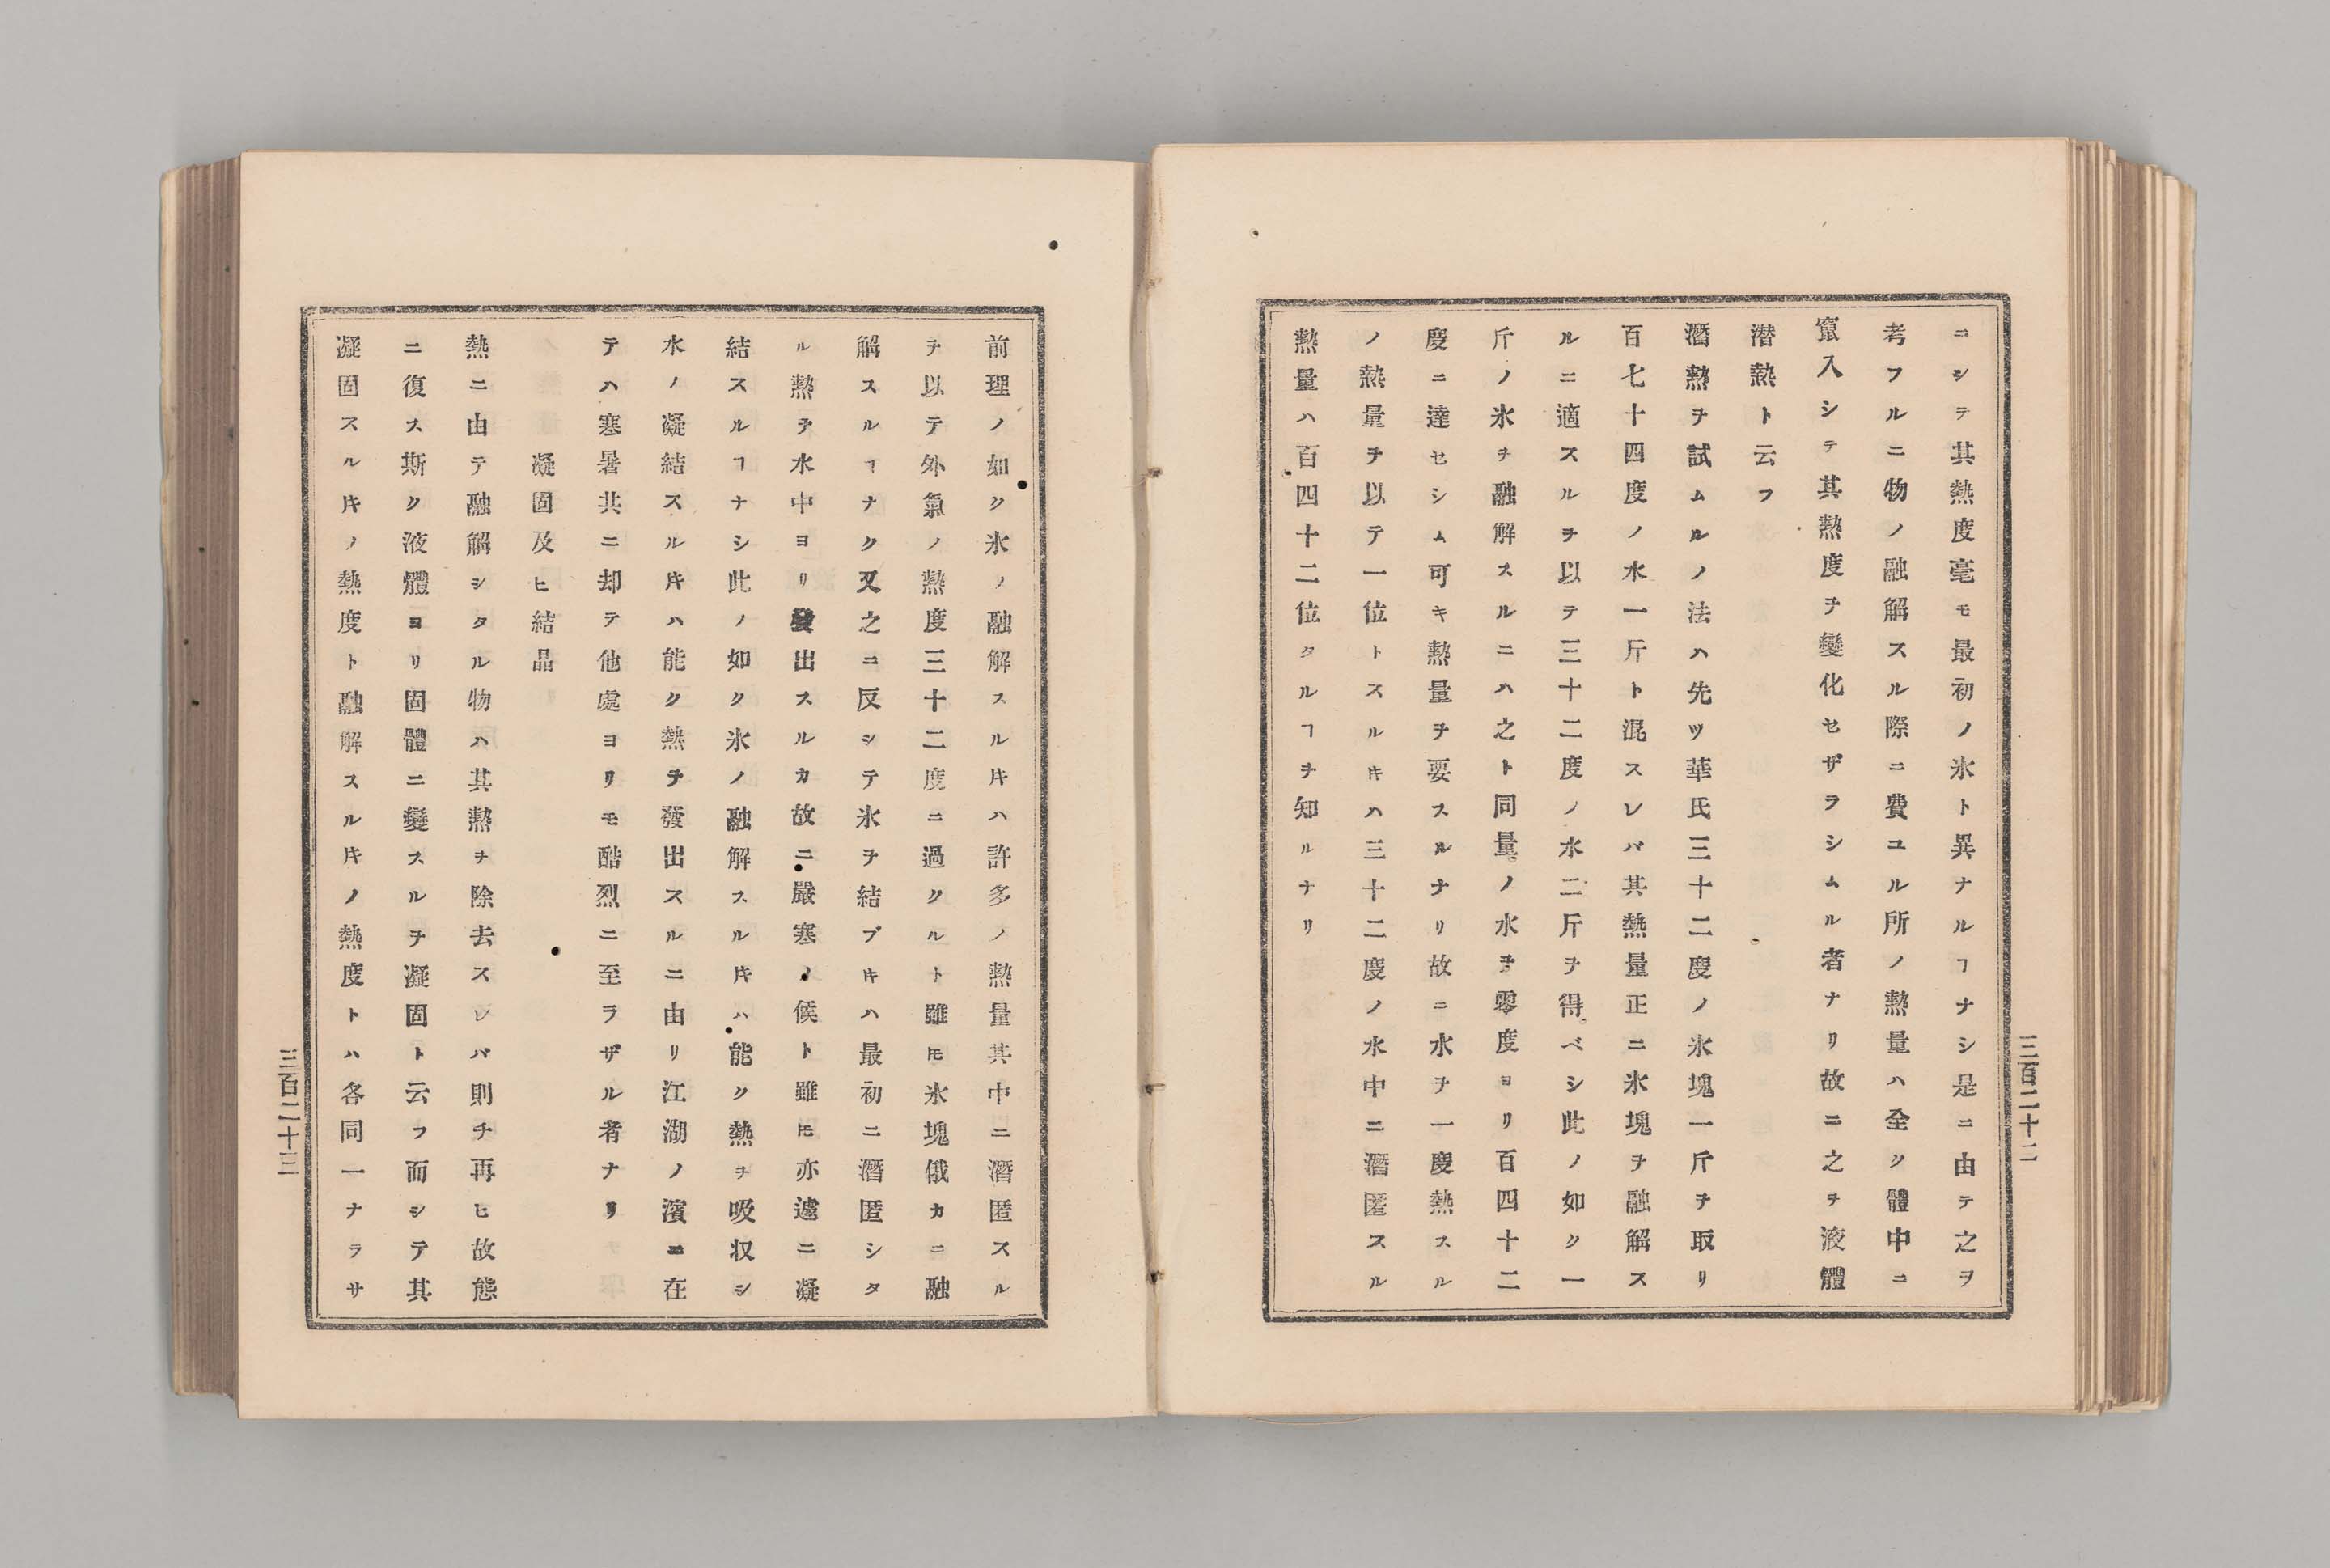 ニシテ其熱度毫モ最初ノ氷ト異ナルヿナシ是ニ由テ之ヲ
考フルニ物ノ融解スル際ニ費ユル所ノ熱量ハ全ク體中ニ
竄入シテ其熱度ヲ變化セザラシムル者ナリ故ニ之ヲ液體
潜熱ト云フ
潛熱ヲ試ムルノ法ハ先ツ華氏三十二度ノ氷塊一斤ヲ取リ
百七十四度ノ水一斤ト混スレバ其熱量正ニ氷塊ヲ融解ス
ルニ適スルヲ以テ三十二度ノ水二斤ヲ得ベシ此ノ如ク一
斤ノ氷ヲ融解スルニハ之ト同量ノ水ヲ零度ヨリ百四十二
度ニ達セシム可キ熱量ヲ要スルナリ故ニ水ヲ一度熱スル
ノ熱量ヲ以テ一位トスルキハ三十二度ノ水中ニ潛匿スル
熱量ハ百四十二位タルヿヲ知ルナリ
三百二十二
前理ノ如ク氷ノ融解スル𪜈ハ許多ノ熱量其中ニ潛匿スル
ヲ以テ外氣ノ熱度三十二度ニ過クルト雖𪜈氷塊俄カニ融
解スルヿナク又之ニ反シテ氷ヲ結ブキハ最初ニ潛匿シタ
ル熱ヲ水中ヨリ發出スルカ故ニ嚴寒ノ候ト雖𪜈亦遽ニ凝
結スルヿナシ此ノ如ク氷ノ融解スル片ハ能ク熱ヲ吸収シ
水ノ凝結スル片ハ能ク熱ヲ發出スルニ由リ江湖ノ濱ニ在
テハ寒暑共ニ却テ他處ヨリモ酷烈ニ至ラザル者ナリ
凝固及ヒ結晶
熱ニ由テ融解シタル物ハ其熱ヲ除去スレバ則チ再ヒ故態
ニ復ス斯ク液體ヨリ固體ニ變スルヲ凝固ト云フ而シテ其
凝固スル片ノ熱度ト融解スル片ノ熱度トハ各同一ナラサ
三百二十三